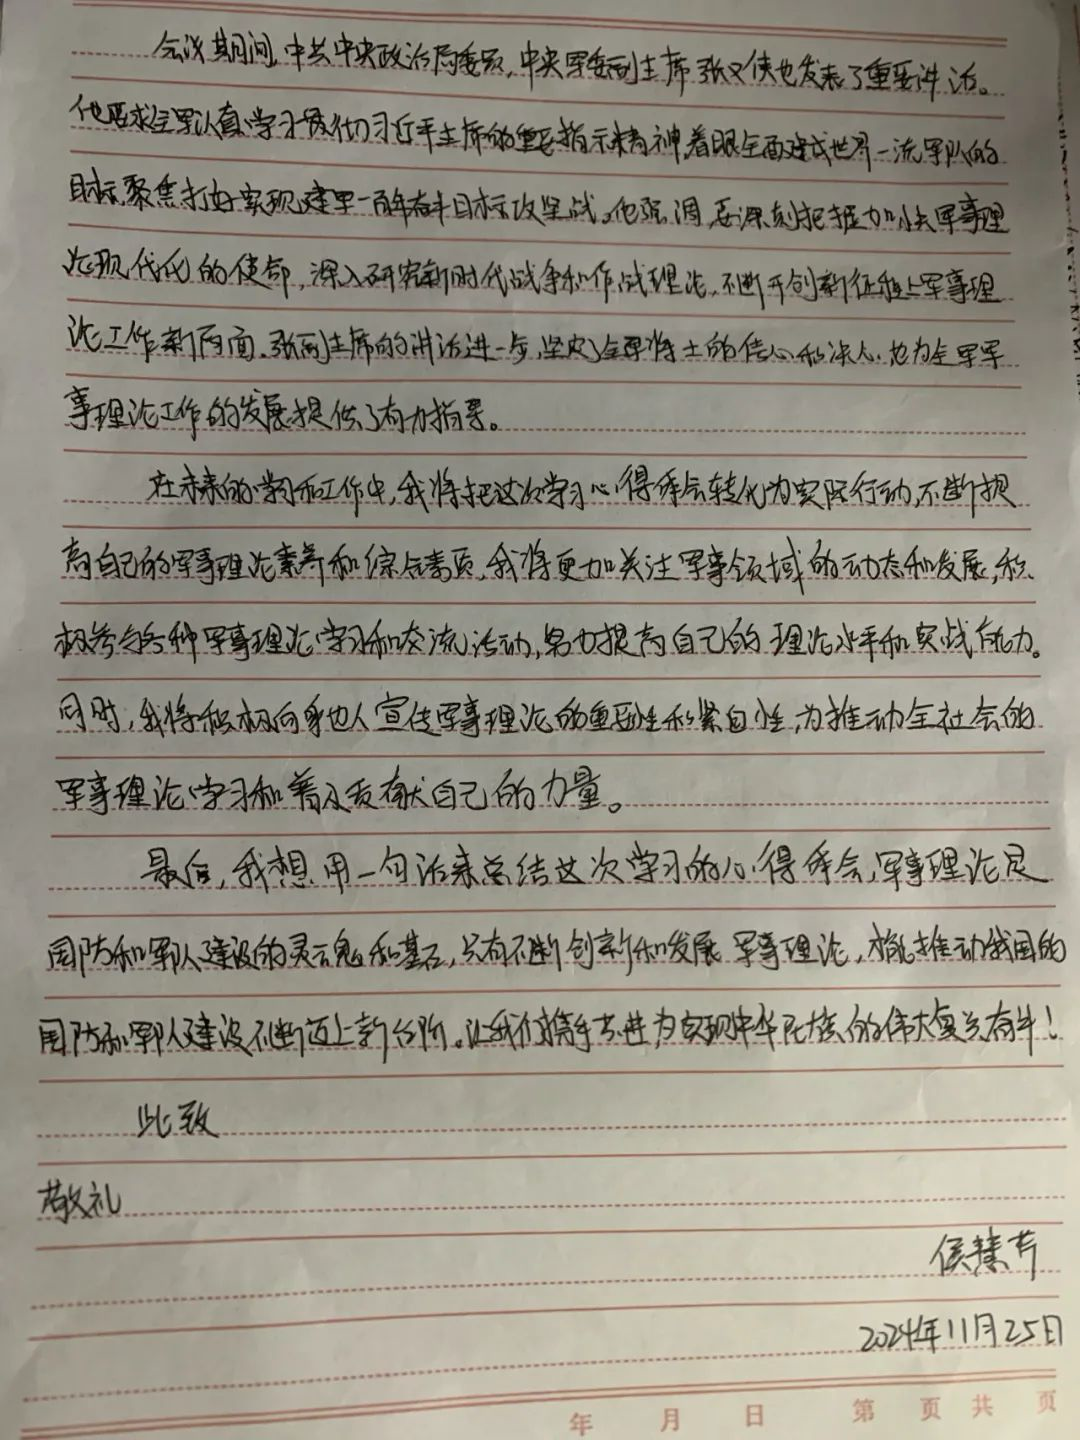 会议期间,中共中央政治局委员,中央军委副主席张又侠也发表了重要讲话。
他要求全军认真学习贯彻习近平主席的重要指示精神着眼全面建成世界一流军队的
目标,聚焦打好实现建军一百年奋斗目标攻坚战。他强调,要深刻把握加快军事理
论现代化的使命,深入研究新时代战争和作战理论,不断开创新征程上军事理
论工作新局面。张副主席的讲话进一步坚定了全军将士的信心和决心,也为全军军
事理论工作的发展提供了有力指导。
在未来的学习和工作中,我将把这次学习心得体会转化为实际行动,不断提
高自己的军事理论素养和综合素质,我将更加关注军事领域的动态和发展,积
极参与各种军事理论学习和交流活动,努力提高自己的理论水平和实战能力。
同时,我将积极向身边人宣传军事理论的重要性和紧迫性,为推动全社会的
军事理论学习和普及贡献自己的力量。
最后,我想用一句话来总结这次学习的心得体会,军事理论是
国防和军队建设的灵魂和基石,只有不断创新和发展军事理论,才能推动我国的
国防和军队建设不断迈上新台阶。让我们携手共进,为实现中华民族的伟大复兴奋斗!
此致
敬礼
侯慧芳
2024年11月25日
年 月 日 第 页 共 页